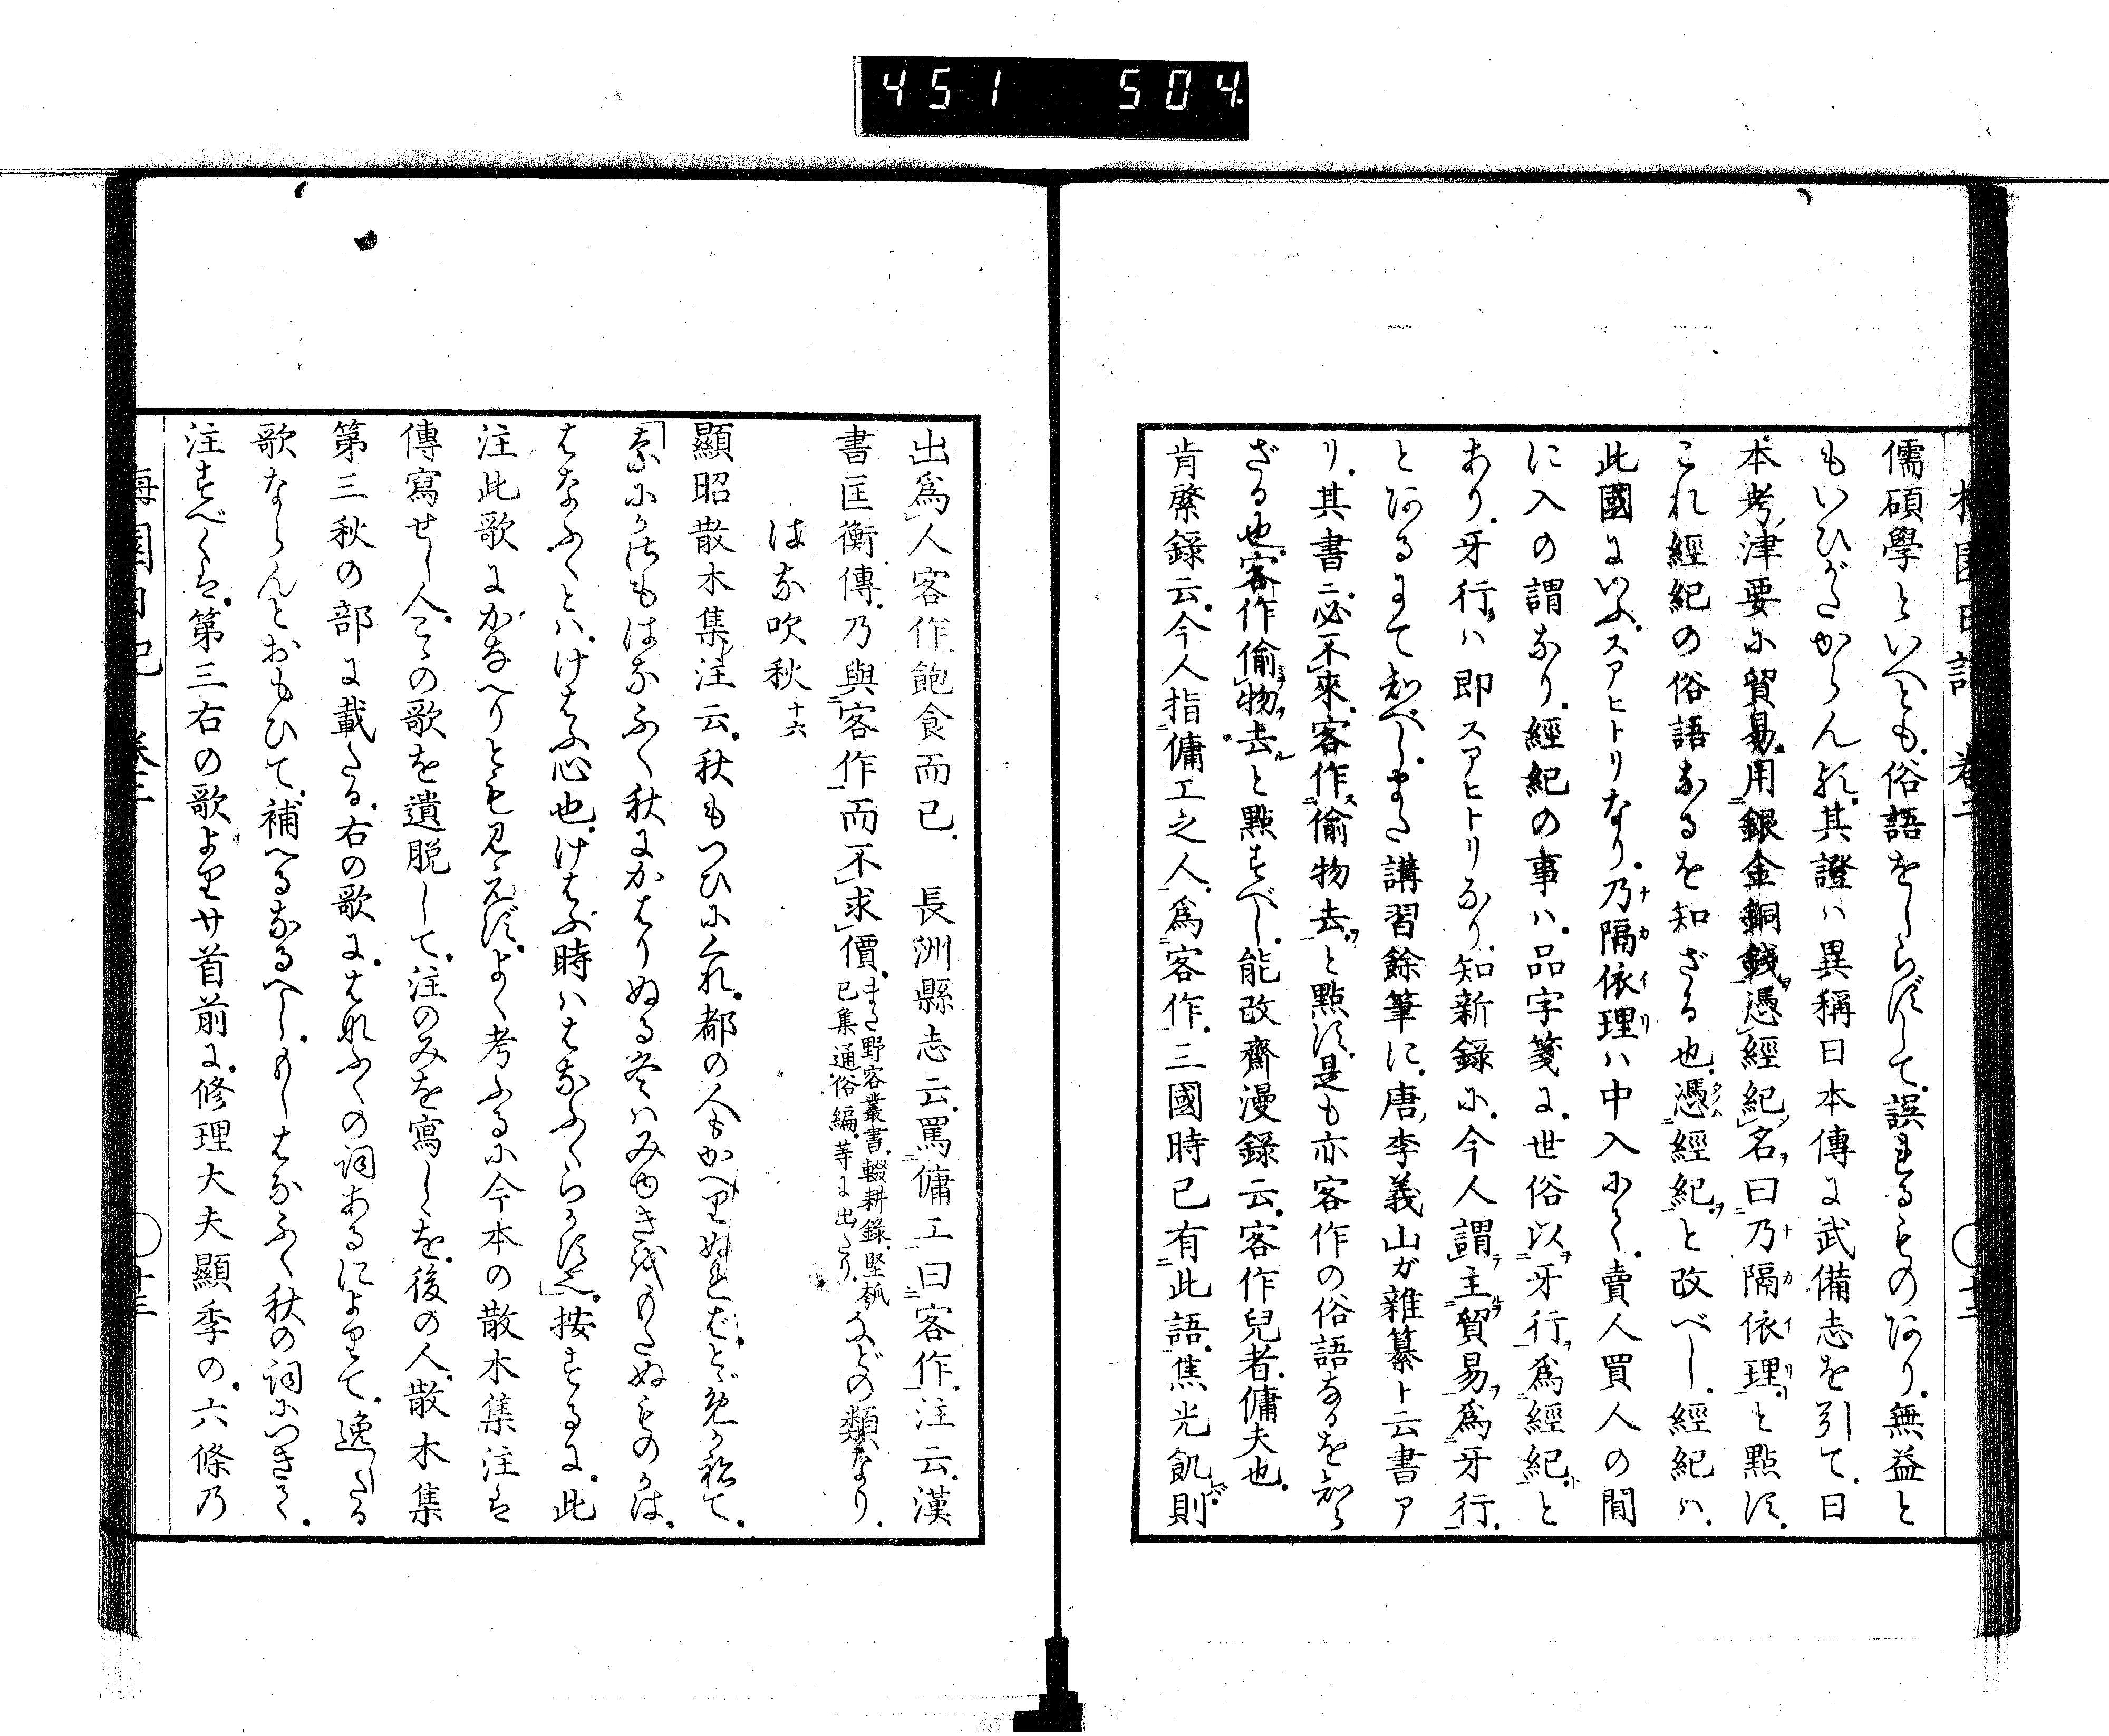 451 504.
儒碩學といへとも。俗語をしらずして。誤れるものあり。無益と
もいひがたからんに。其證ハ異稱日本傳に武備志を引て。日
本考。津要に貿易。用銀金銅錢憑經紀名曰乃隔依理と點す。
これ經紀の俗語なるを知ざる也。憑經紀と改べし。經紀ハ。
此國にいふ。スアヒトリなり。乃隔依理ハ中入にて。賣人買人の間
に入の謂なり。經紀の事ハ。品字箋に。世俗以牙行為經紀と
あり。牙行ハ即スアヒトリなり。知新録に。今人謂主貿易爲牙行。
とあるにて知べし。また講習餘筆に。唐李義山ガ雜纂ト云書ア
リ。其書ニ必不來。客作偷物去。と點す。是も亦客作の俗語なるを知ら
ざる也。客作偷物去と點すべし。能改齋漫録云。客作兒者。傭夫也。
肯綮録云。今人指傭工之人。爲客作。三國時已有此語。焦光飢則
出爲人客作。飽食而已。 長洲縣志云。罵傭工曰客作。注云。漢
書匡衡傳。乃與客作而不求價。また野客叢書。輟耕錄。堅瓠
已集通俗編。等に出たり。などの類なり。
はな吹秋十六
顯昭散木集注云。秋もつひにくれ。都の人もかへりぬれば。とゞめかねて。
はなふくとハ。けはふ心也。けはふ時ハはなふくらかす也。」按するに。此
注此歌にかなへりとも見えず。よく考ふるに今本の散木集注は
傳寫せし人。今の歌を遺脱して。注のみを寫しゝを。後の人。散木集
第三秋の部に載たる。右の歌に。はなふくの詞あるによりて。逸したる
歌ならんとおもひて。補へるなるべし。もしはなふく秋の詞につきて。
注すべくは。第三右の歌より廿首前に。修理大夫顯季の。六條乃
梅園日記 卷二